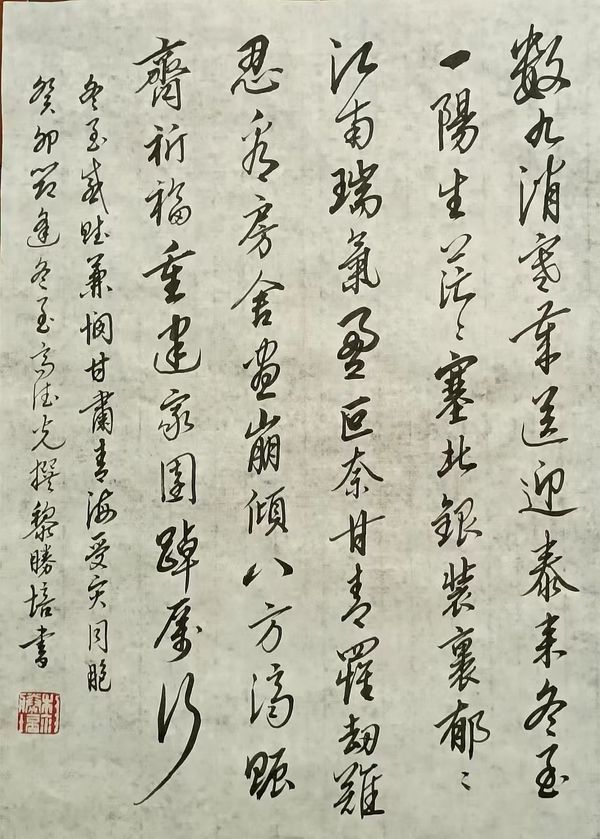 數九消寒葉送迎泰来冬至
一陽生茫〻塞北銀裝裹郁〻
江南瑞氣盈叵奈甘青罹劫難
忍看房舍盡崩傾八方濟賑
齊祈福重建家園踔厲行
冬至感賦兼憫甘肅青海受灾同胞
癸卯節逢冬至高德光撰黎勝培書